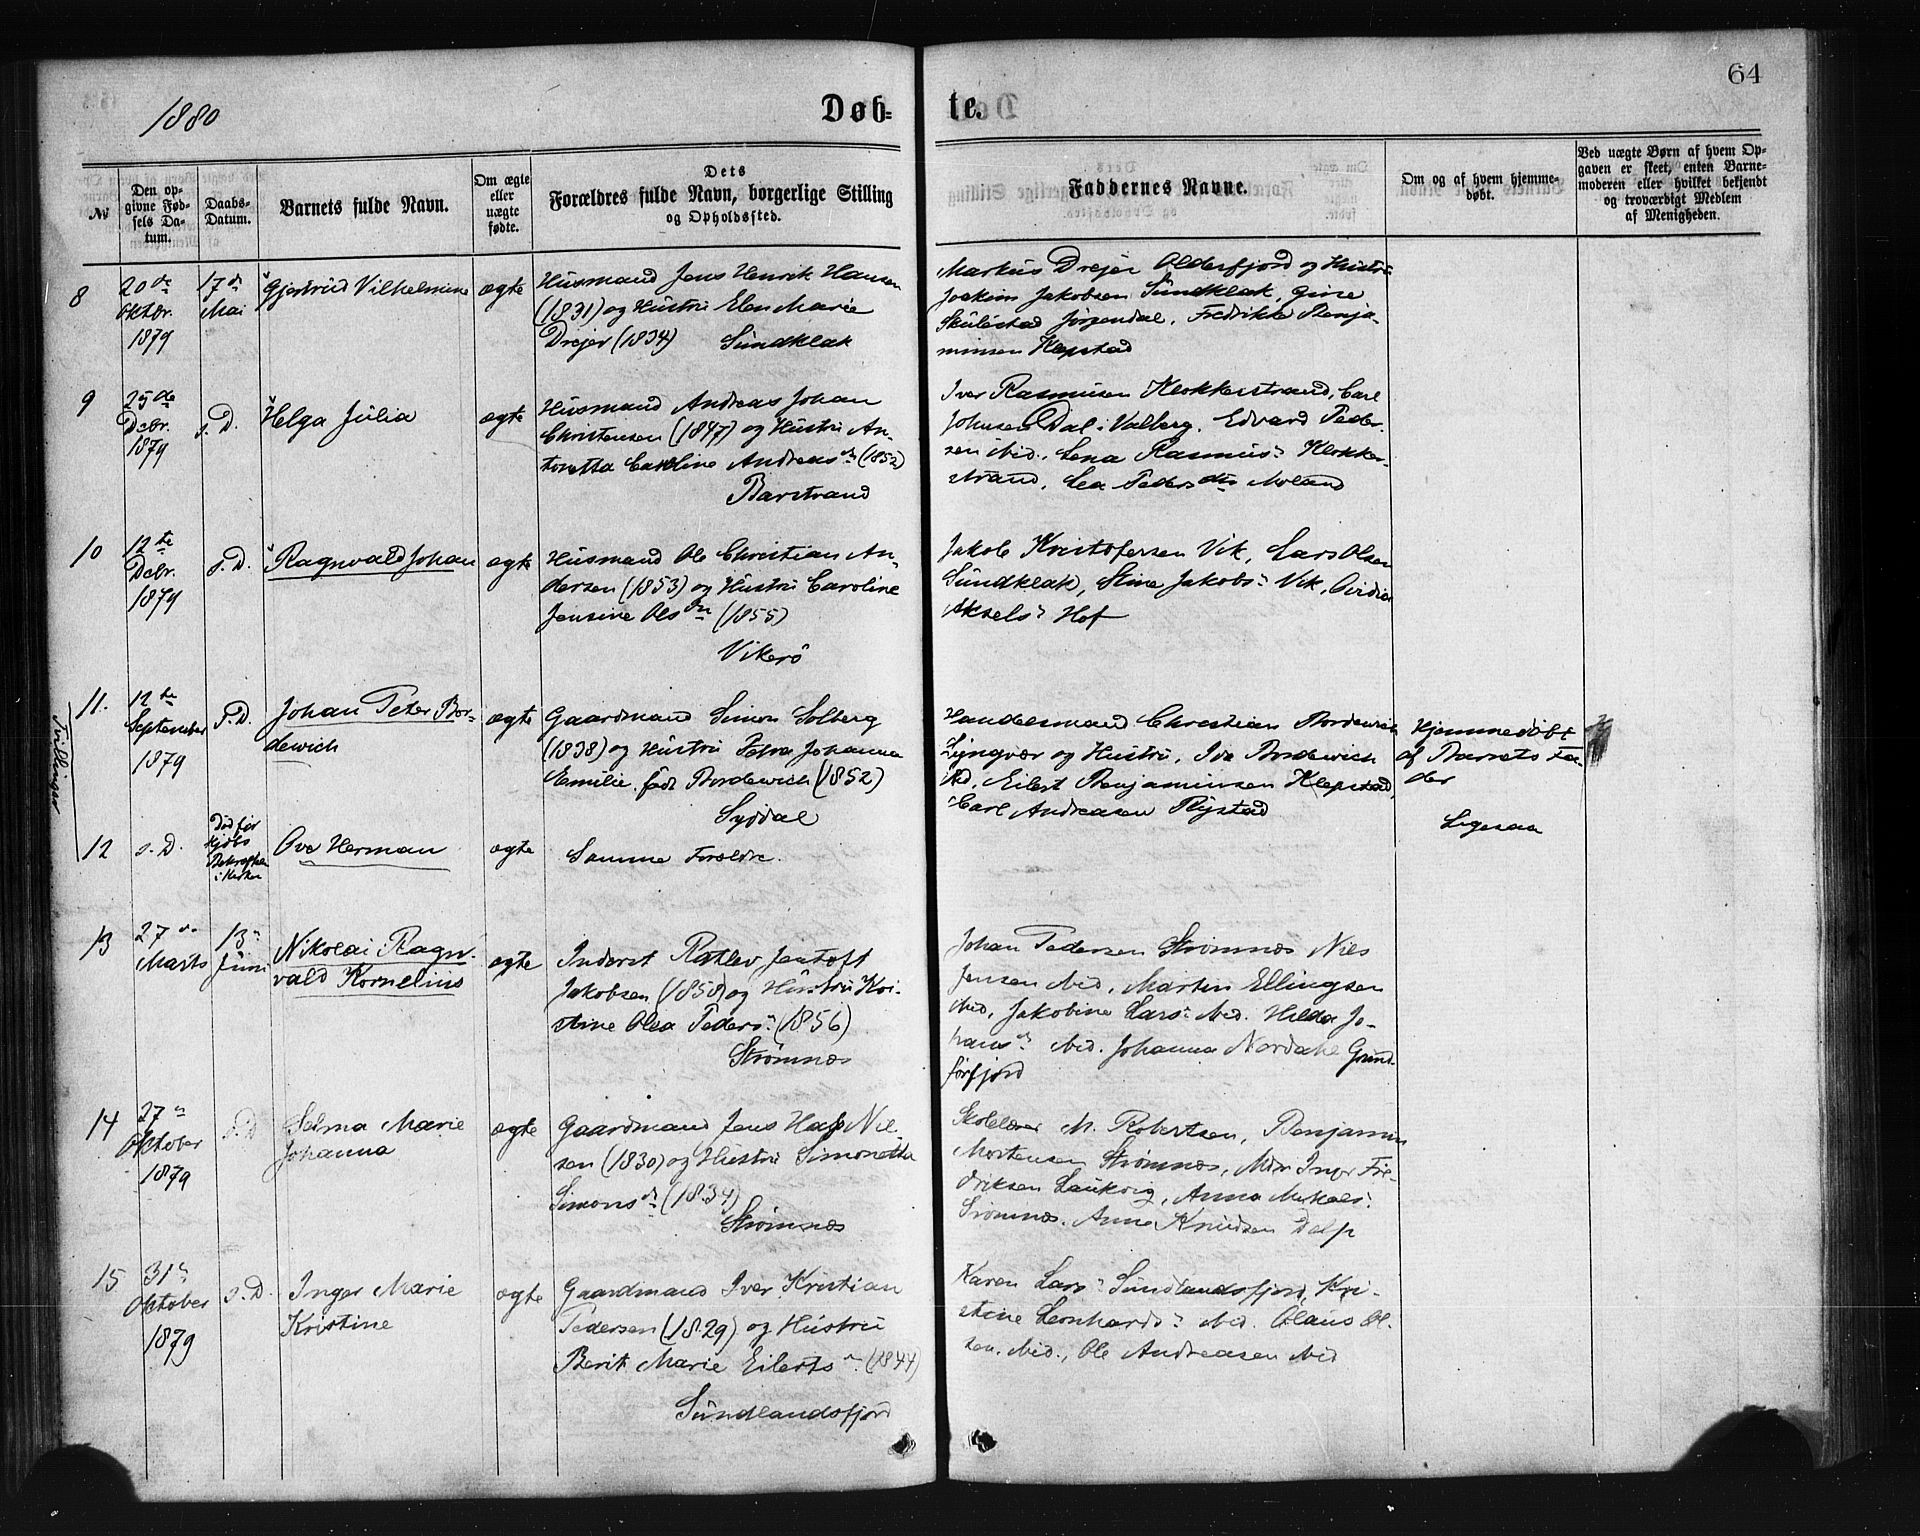 64
1880
Døb-
te.
№
Den op-
givne Fød-
sels Da-
tum.
Daabs-
Datum.
Barnets fulde Navn.
Om ægte
eller
uægte
fødte.
Dets
Forældres fulde Navn, borgerlige Stilling
og Opholdssted.
Faddernes Navne.
Om og af hvem hjemme-
døbt.
Ved uægte Børn af hvem Op-
gaven er skeet, enten Barne-
moderen eller hvilket bekjendt
og troværdigt Medlem
af Menigheden.
8
20de
Oktbr.
1879
17de
Mai
Gjertrud Vilhelmine
ægte
Husmand Jens Henrik Hansen
(1831) og Hustru Elen Marie
Drejer (1834) Sundklak
Markus Drejer Olderfjord og Hustru
Joakim Jakobsen Sundklak, Gine
Skulestad Jørgendal, Fredrikke Benja-
minsen Klepstad
9
25de
Decbr.
1879
s. D.
Helga Julia
ægte
Husmand Andreas Johan
Christensen (1847) og Hustru An-
toretta Caroline Andreasdr (1852)
Barstrand
Iver Rasmusen Klokkerstrand, Carl
Johnsen Dal i Valberg, Edvard Peder-
sen ibid., Lena Rasmus: Klokker-
strand, Lea Pedersdtr Moland
10
12te
Decbr.
1879
s. D.
Ragnvald Johan
ægte
Husmand Ole Christian An-
dersen (1853) og Hustru Caroline
Jensine Olsdr (1855)
Vikerö
Jakob Kristofersen Vik, Lars Olsen
Sundklak, Stine Jakobs: Vik,
Aksels: Hof
Tvillinger
11.
12te
September
1879
s. D.
Johan Peter Bor-
dewich
ægte
Gaardmand Simon Solberg
(1838) og Hustru Petra Johanna
Emilie, født Bordewich (1852)
Syddal
Handelsmand Christian Bordewich
Lyngvær og Hustru, Ida Bordewich
ibd, Eilert Benjaminsen Klepstad,
Carl Andreasen Rystad
Hjemmedøbt
af Barnets Fa-
der
12
s. D.
Død før
i Kirken
Ove Herman
ægte
Samme Forældre.
Ligesaa
13
27de
Marts
13de
Juni
Nikolai Ragn-
vald Kornelius
ægte
Inderst Ratlev Jentoft
Jakobsen (1858) og Hustru Kri-
stine Olea Peders: (1856)
Strømnæs
Johan Pedersen Strømnæs Nils
Jensen ibid, Martin Ellingsen
ibid, Jakobine Lars: ibid. Hilda Jo-
hansdr ibid. Johanna Nordahl Grund-
førfjord
14
27de
Oktober
1879
s. D
Selma Marie
Johanna
ægte
Gaardmand Jens Hass Niel-
sen (1830) og Hustru Simonetta
Simonsdr (1834)
Strømnæs
Skolelærer M. Robertsen, Benjamin
Mortensen Strømnæs, Mdm Inger Fre-
driksen Laukvig, Anna Mikaels:
Srømnæs. Anne Knudsen Delp
15
31te
Oktober
1879
s. D.
Inger Marie
Kristine
ægte
Gaardmand Iver Kristian
Pedersen (1829) og Hustru
Berit Marie Eilerts: (1844)
Sundlandsfjord
Karen Lars: Sundlandsfjord, Kri-
stine Leonhards: ibid. Olaus Ol-
sen. ibid., Ole Andreasen ibid